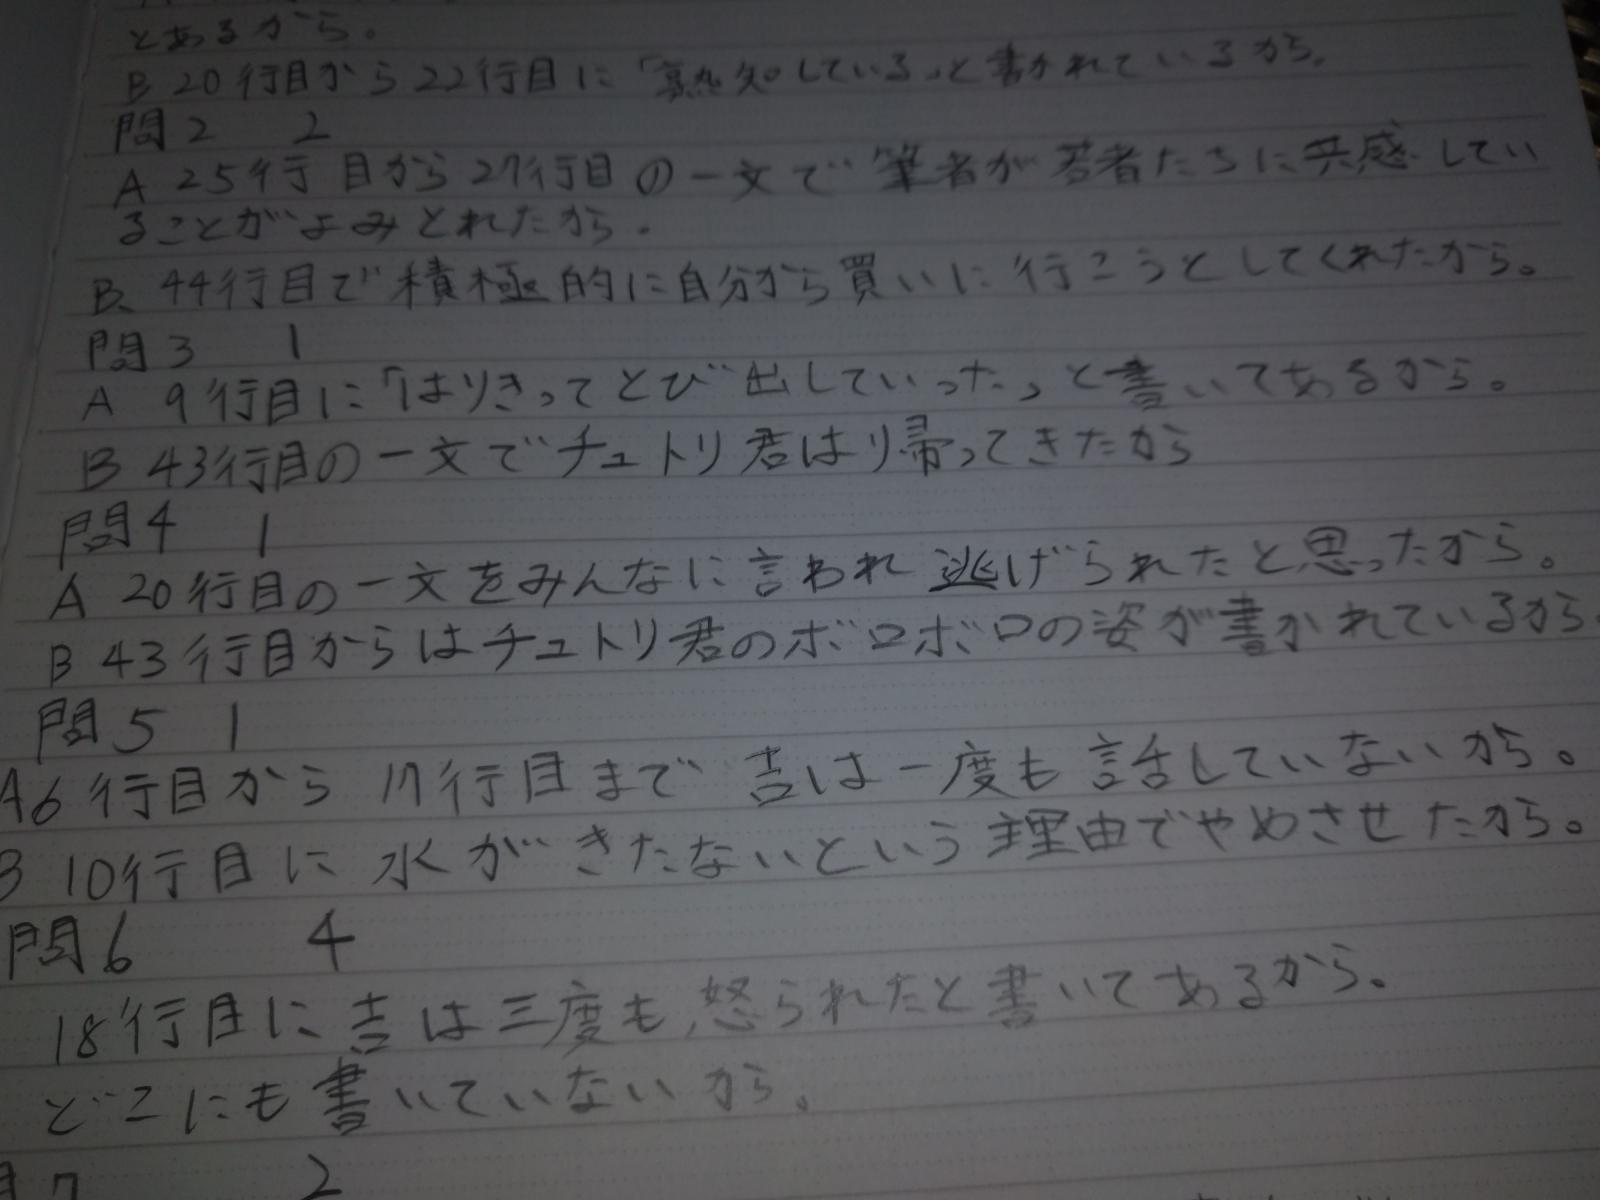 とあるから。
B 20行目から22行目に「熟知している」と書かれているから。
問2 2
A 25行目から27行目の一文で筆者が若者たちに共感してい
ることがよみとれたから。
B. 44行目で積極的に自分から買いに行こうとしてくれたから。
問3 1
A 9行目に「はりきってとび出していった」と書いてあるから。
B 43行目の一文でチュトリ君は帰ってきたから
問4 1
A 20行目の一文をみんなに言われ逃げられたと思ったから。
B 43行目からはチュトリ君のボロボロの姿が書かれているから
問5 1
A6行目から17行目まで吉は一度も話していないから。
B 10行目に水がきたないという理由でやめさせたから。
問6 4
18行目に吉は三度も怒られたと書いてあるから。
どこにも書いていないから。
問7 2